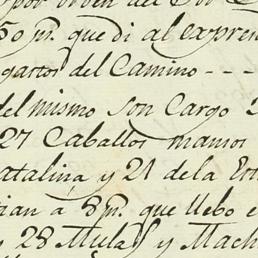 por orden del
50 p.s que di al expre
gastos del Camino - - -
del mismo son Cargo 2
27 Caballos mansos
atalina, y 21 de la
a 8 p.s que llebo e
28 Mulas y Mach